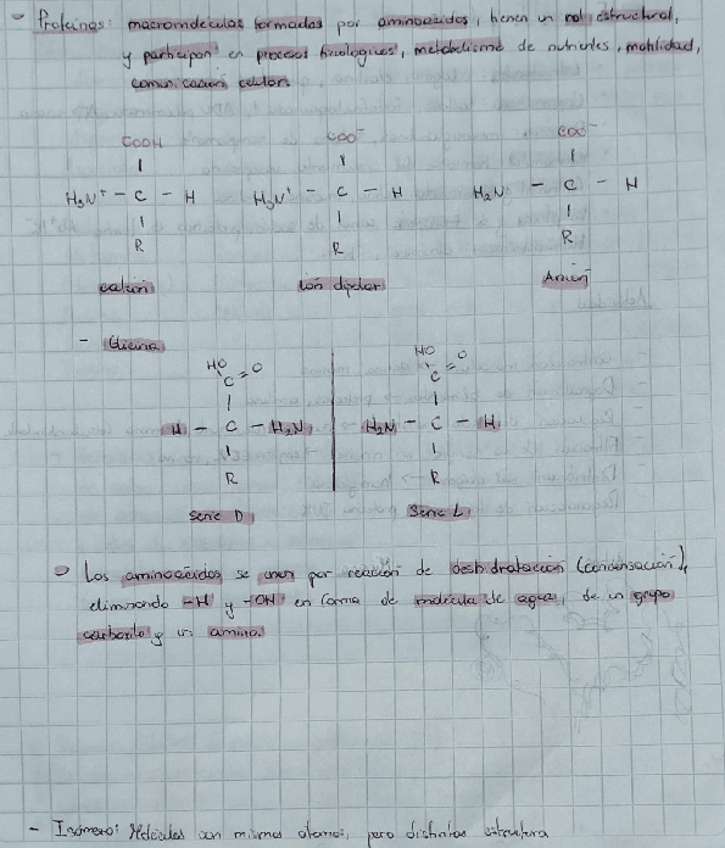 Proteínas: macromoléculas formadas por aminoácidos, tienen un rol estructural,
y participan en procesos biológicos, metabolismo de nutrientes, motilidad,
comunicación celular.
COOH COO⁻ COO⁻
| | |
H₃N⁺ - C - H H₃N⁺ - C - H H₂N - C - H
| | |
R R R
catión ión dipolar Anión
- Glicina
HO HO
C = O C = O
| |
H - C - H₂N H₂N - C - H
| |
R R
Serie D Serie L
Los aminoácidos se unen por reacción de deshidratación (condensación),
eliminando -H y -OH en forma de molécula de agua, de un grupo
carboxilo y un amino.
- Isómero: Moléculas con mismos átomos, pero distintas estructura